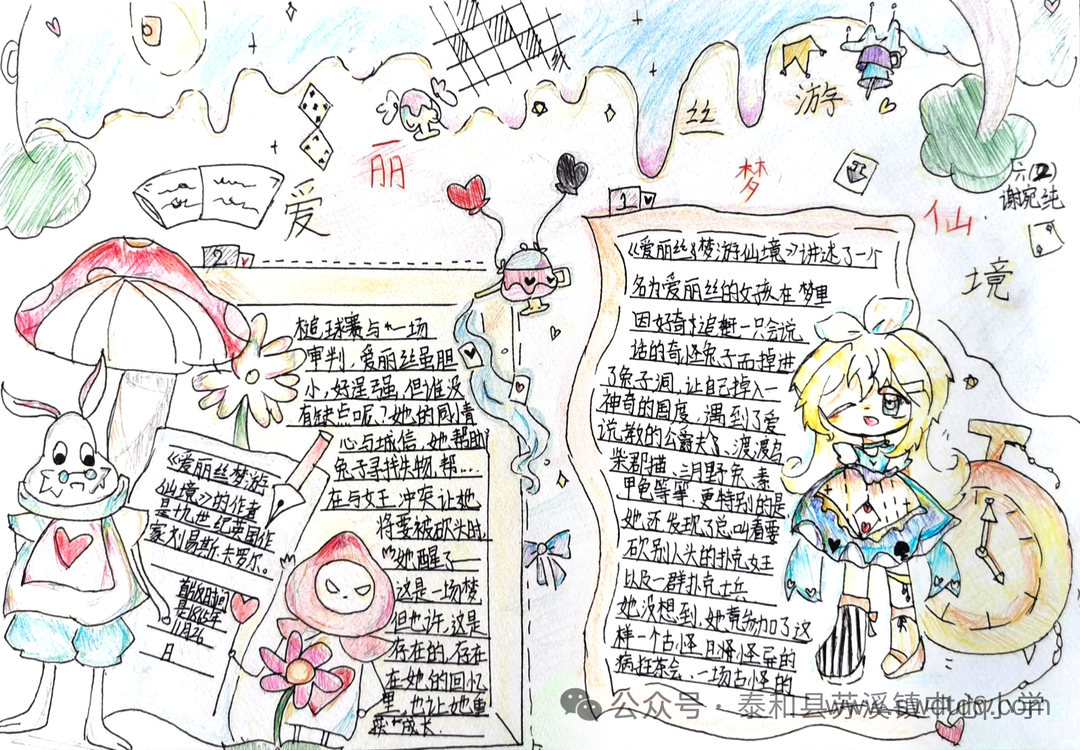 爱丽丝梦游仙境
六(2)
谢宛纯
1
《爱丽丝梦游仙境》讲述了一个
名为爱丽丝的女孩在梦里
因好奇追赶一只会说
话的奇怪兔子而掉进
了兔子洞,让自己掉入一
神奇的国度,遇到了爱
说教的公爵夫人、渡渡鸟
柴郡猫、三月野兔、素
甲龟等等,更特别的是
她还发现了总叫着要
砍别人头的扑克女王
以及一群扑克士兵
她没想到,她竟参加了这
样一个古怪日将怪异的
疯狂茶会,一场古怪的
2
槌球赛与一场
审判,爱丽丝虽胆
小,好逞强,但谁没
有缺点呢?她的同情
心与诚信,她帮助
兔子寻找失物,帮....
在与女王冲突让她
将要被砍头时,
她醒了一
这是一场梦
但也许,这是
存在的,存在
在她的回忆
里,也让她重
获"成长.
《爱丽丝梦游
仙境》的作者
是十九世纪英国作
家刘易斯·卡罗尔。
首版时间
是1865年
11月26
日
公众号 · 泰和县苑溪镇中心小学